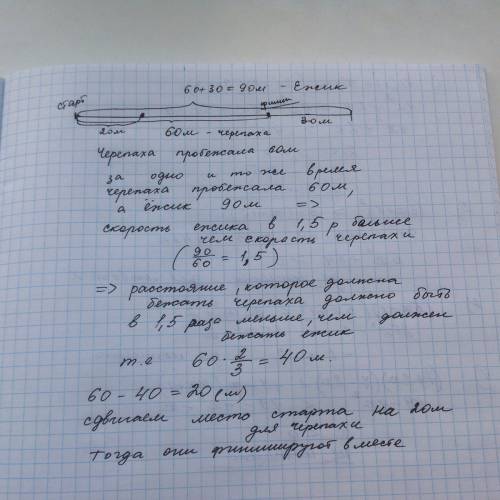 60+30=90м - Ёжик
старт
финиш
20м
60м - черепаха
30м
Черепаха пробежала 60м
за одно и то же время
черепаха пробежала 60м,
а ёжик 90м =>
скорость ежика в 1,5 р больше
чем скорость черепахи
(90/60 = 1,5)
=> расстояние, которое должна
бежать черепаха должно быть
в 1,5 раза меньше, чем должен
бежать ежик
т.е 60 · 2/3 = 40м.
60 - 40 = 20 (м)
сдвигаем место старта на 20м
для черепахи
тогда они финишируют вместе